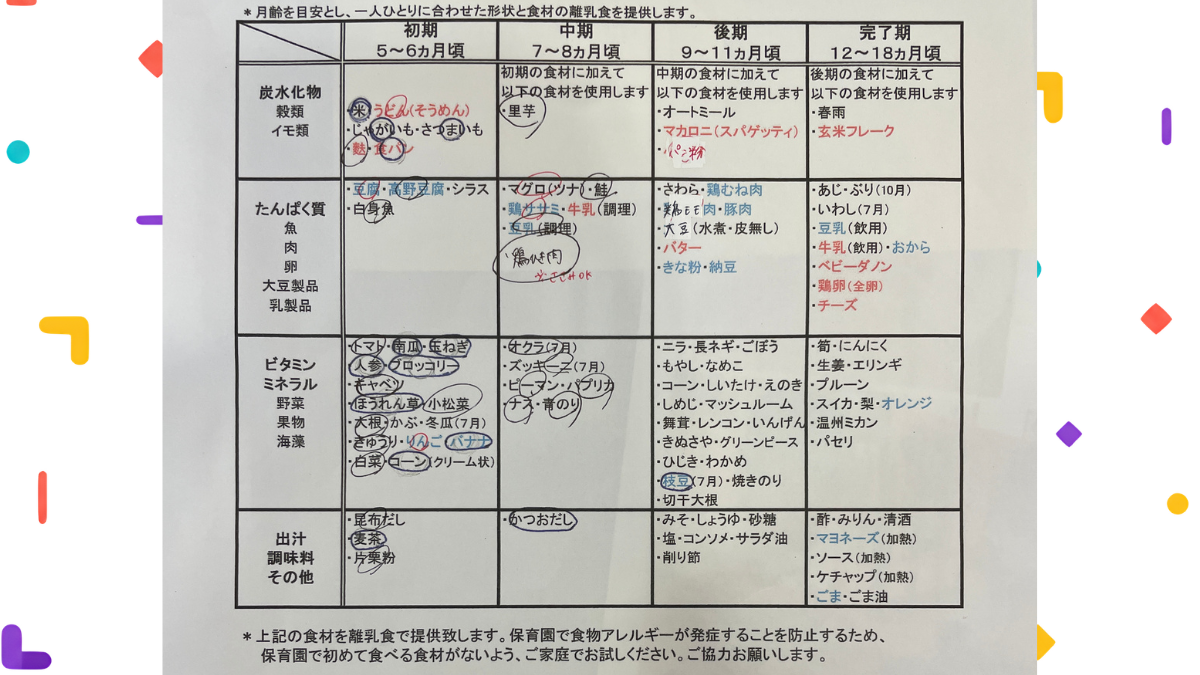 ＊月齢を目安とし、一人ひとりに合わせた形状と食材の離乳食を提供します。
初期
5～6ヵ月頃
中期
7～8ヵ月頃
後期
9～11ヵ月頃
完了期
12～18ヵ月頃
炭水化物
穀類
イモ類
・米・うどん(そうめん)
・じゃがいも・さつまいも
・麩・食パン
初期の食材に加えて
以下の食材を使用します
・里芋
中期の食材に加えて
以下の食材を使用します
・オートミール
・マカロニ(スパゲッティ)
・パン粉
後期の食材に加えて
以下の食材を使用します
・春雨
・玄米フレーク
たんぱく質
魚
肉
卵
大豆製品
乳製品
・豆腐・高野豆腐・シラス
・白身魚
・マグロ(ツナ)・鮭
・鶏ササミ・牛乳(調理)
・豆乳(調理)
・鶏ひき肉
※ささみOK
・さわら・鶏むね肉
・鶏モモ肉・豚肉
・大豆(水煮・皮無し)
・バター
・きな粉・納豆
・あじ・ぶり(10月)
・いわし(7月)
・豆乳(飲用)
・牛乳(飲用)・おから
・ベビーダノン
・鶏卵(全卵)
・チーズ
ビタミン
ミネラル
野菜
果物
海藻
・トマト・南瓜・玉ねぎ
・人参・ブロッコリー
・キャベツ
・ほうれん草・小松菜
・大根・かぶ・冬瓜(7月)
・きゅうり・りんご・バナナ
・白菜・コーン(クリーム状)
・オクラ(7月)
・ズッキーニ(7月)
・ピーマン・パプリカ
・ナス・青のり
・ニラ・長ネギ・ごぼう
・もやし・なめこ
・コーン・しいたけ・えのき
・しめじ・マッシュルーム
・舞茸・レンコン・いんげん
・きぬさや・グリーンピース
・ひじき・わかめ
・枝豆(7月)・焼きのり
・切干大根
・筍・にんにく
・生姜・エリンギ
・プルーン
・スイカ・梨・オレンジ
・温州ミカン
・パセリ
出汁
調味料
その他
・昆布だし
・麦茶
・片栗粉
・かつおだし
・みそ・しょうゆ・砂糖
・塩・コンソメ・サラダ油
・削り節
・酢・みりん・清酒
・マヨネーズ(加熱)
・ソース(加熱)
・ケチャップ(加熱)
・ごま・ごま油
＊上記の食材を離乳食で提供致します。保育園で食物アレルギーが発症することを防止するため、
保育園で初めて食べる食材がないよう、ご家庭でお試しください。ご協力お願いします。